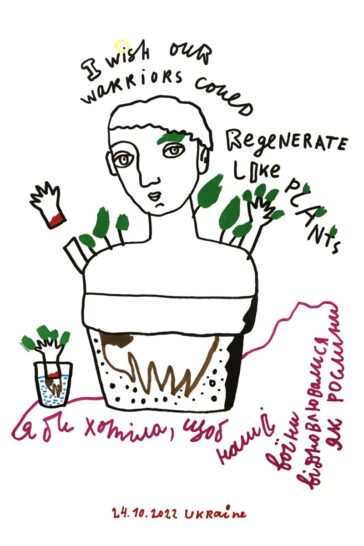 I wish our
warriors could
Regenerate
like plants
я би хотіла, щоб
наші
воїни
відновлювалися
як рослини
24.10.2022 Ukraine